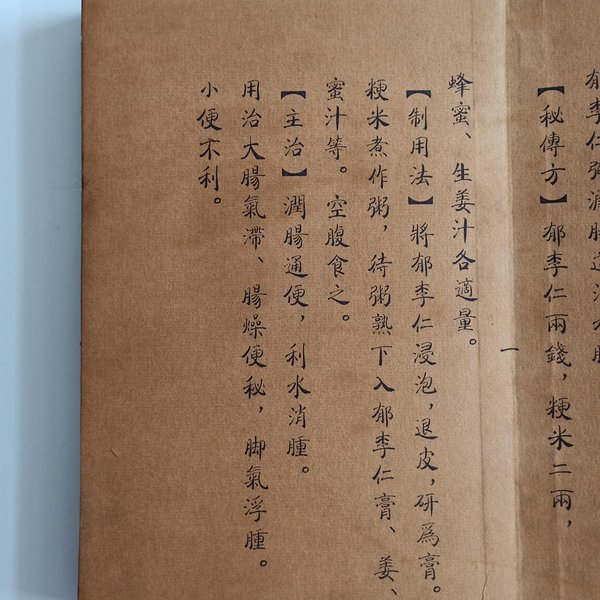 郁李仁粥潤腸通
【秘傳方】郁李仁兩錢，粳米二兩，
一
蜂蜜、生姜汁各適量。
【制用法】將郁李仁浸泡，退皮，研爲膏。
粳米煮作粥，待粥熟下入郁李仁膏、姜、
蜜汁等。空腹食之。
【主治】潤腸通便，利水消腫。
用治大腸氣滯、腸燥便秘，脚氣浮腫。
小便不利。